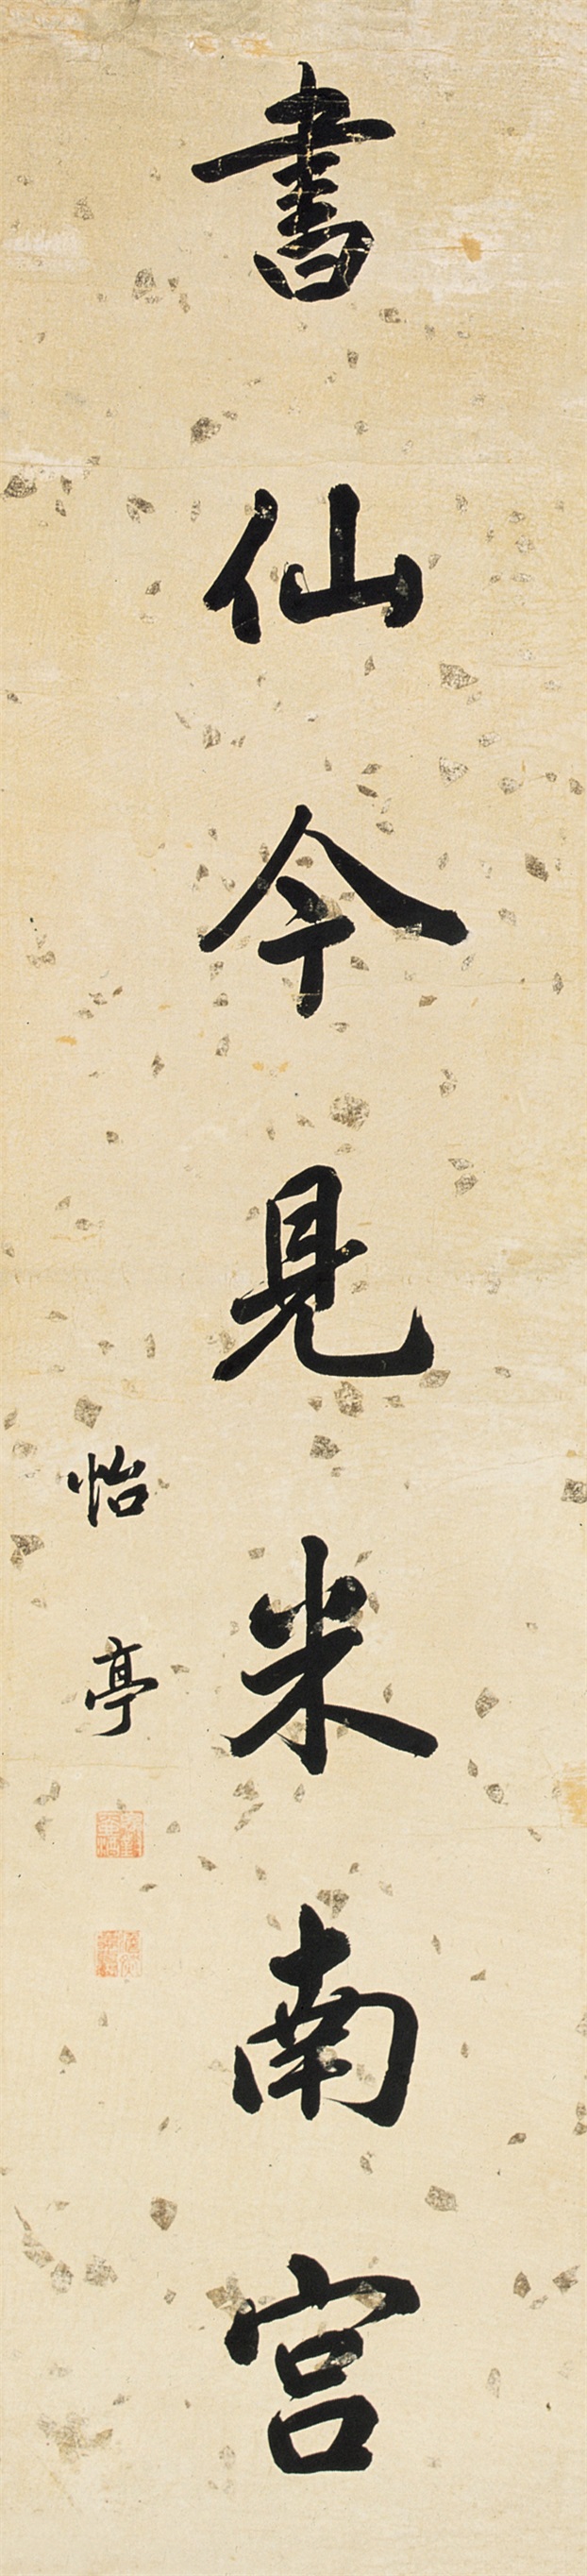 書仙今見米南宮
怡亭